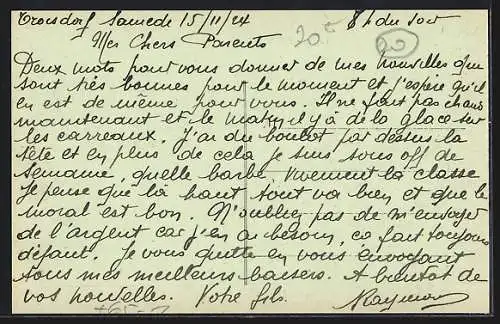 Troisdorf Samedi 15/11/24 8 h du soir
20 F 20
Mes Chers Parents
Deux mots pour vous donner de mes nouvelles qui
sont très bonnes pour le moment et j'espère qu'il
en est de même pour vous. Il ne fait pas chaud
maintenant et le matin il y a de la glace sur
les carreaux. J'ai du boulot par dessus la
tête et en plus de cela je suis sous off de
semaine, quelle barbe, vivement la classe
Je pense que là haut tout va bien et que le
moral est bon. N'oubliez pas de m'envoyer
de l'argent car j'en ai besoin, ça fait toujours
défaut. Je vous quitte en vous envoyant
tous mes meilleurs baisers. A bientôt de
vos nouvelles. Votre fils.
Raymond